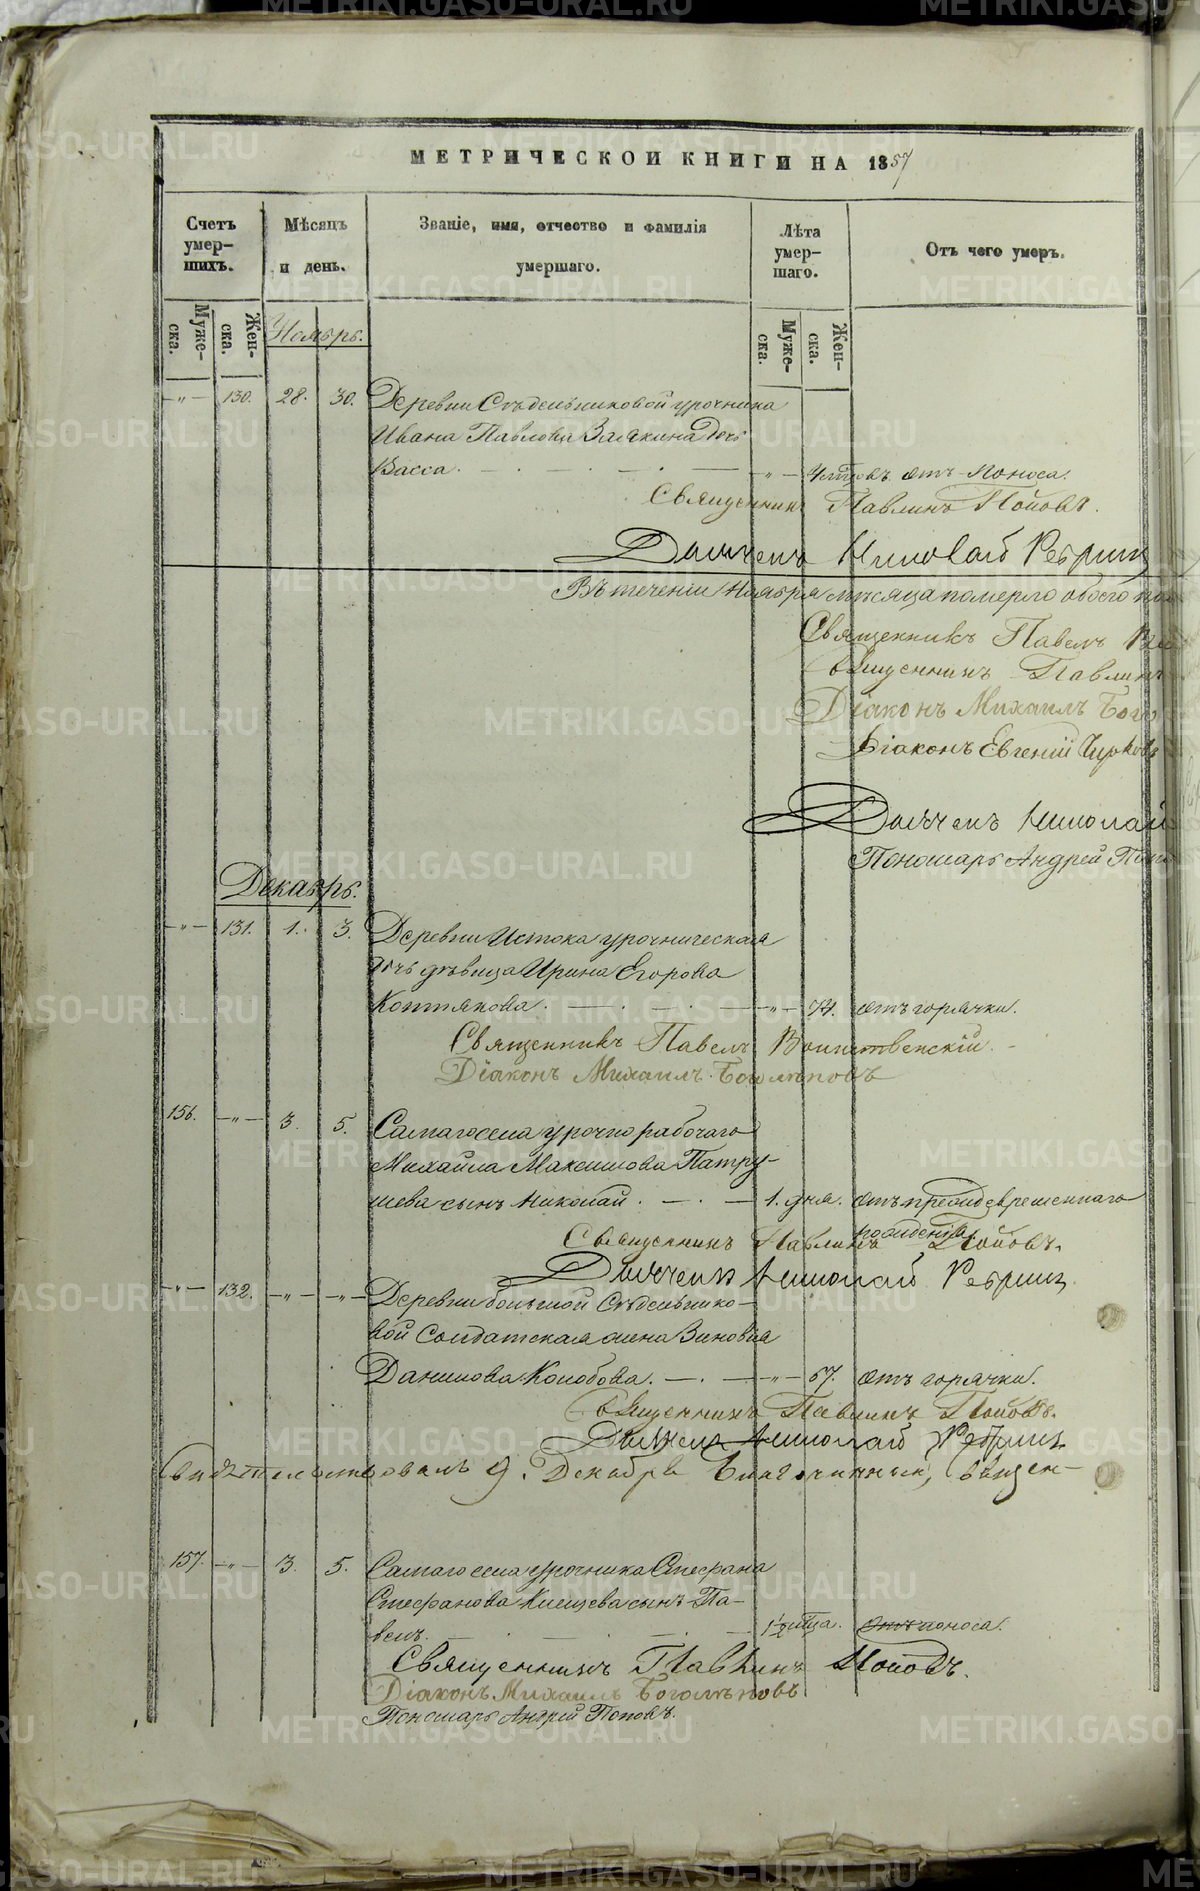 МЕТРИЧЕСКОЙ КНИГИ НА 1857
Счетъ умер- шихъ.
Мѣсяцъ и день.
Званіе, имя, отчество и фамилія умершаго.
Лѣта умер- шаго.
Отъ чего умеръ.
Муже- ска.
Жен- ска.
Муже- ска.
Жен- ска.
Ноябрь.
—"— 130. 28. 30. Деревни Сѣдельниковой урочника
Ивана Павлова Залякина дочь
Васса. —"— отъ поноса.
Священникъ Павлинъ Поповъ.
Дьячекъ Николай Ребрин
Въ теченіи Ноября мѣсяца померло обоего по
Священникъ Павелъ
Священникъ Павлинъ
Діаконъ Михаилъ Бого
Діаконъ Евгеній
Дьячекъ Николай
Пономарь Андрей Поп
Декабрь.
—"— 131. 1. 3. Деревни Истока урочническая
дочь дѣвица Ирина Егорова
Котлякова. —"— 74. отъ горячки.
Священникъ Павелъ Воинственскій.
Діаконъ Михаилъ Боголѣповъ
156. —"— 3. 5. Самаго села урочно рабочаго
Михайла Максимова Патру-
шева сынъ Николай. — 1. дня. отъ преждевременнаго
рожденія.
Священникъ Павлинъ Поповъ.
Дьячекъ Николай Ребрин
—"— 132. —"— —"— Деревни большой Сѣдельнико-
вой Солдатская жена Зиновія
Данилова Колобова. —"— 67. отъ горячки.
Священникъ Павлинъ Поповъ.
Дьячекъ Николай Ребрин
Свидѣтельствовалъ 9. Декабря Благочинный, Священ-
157. —"— 3. 5. Самаго села урочника Стефана
Стефанова Клещева сынъ Па-
велъ. 1½ мѣца. отъ поноса.
Священникъ Павлинъ Поповъ.
Діаконъ Михаилъ Боголѣповъ
Пономарь Андрей Поповъ.
METRIKI.GASO-URAL.RU